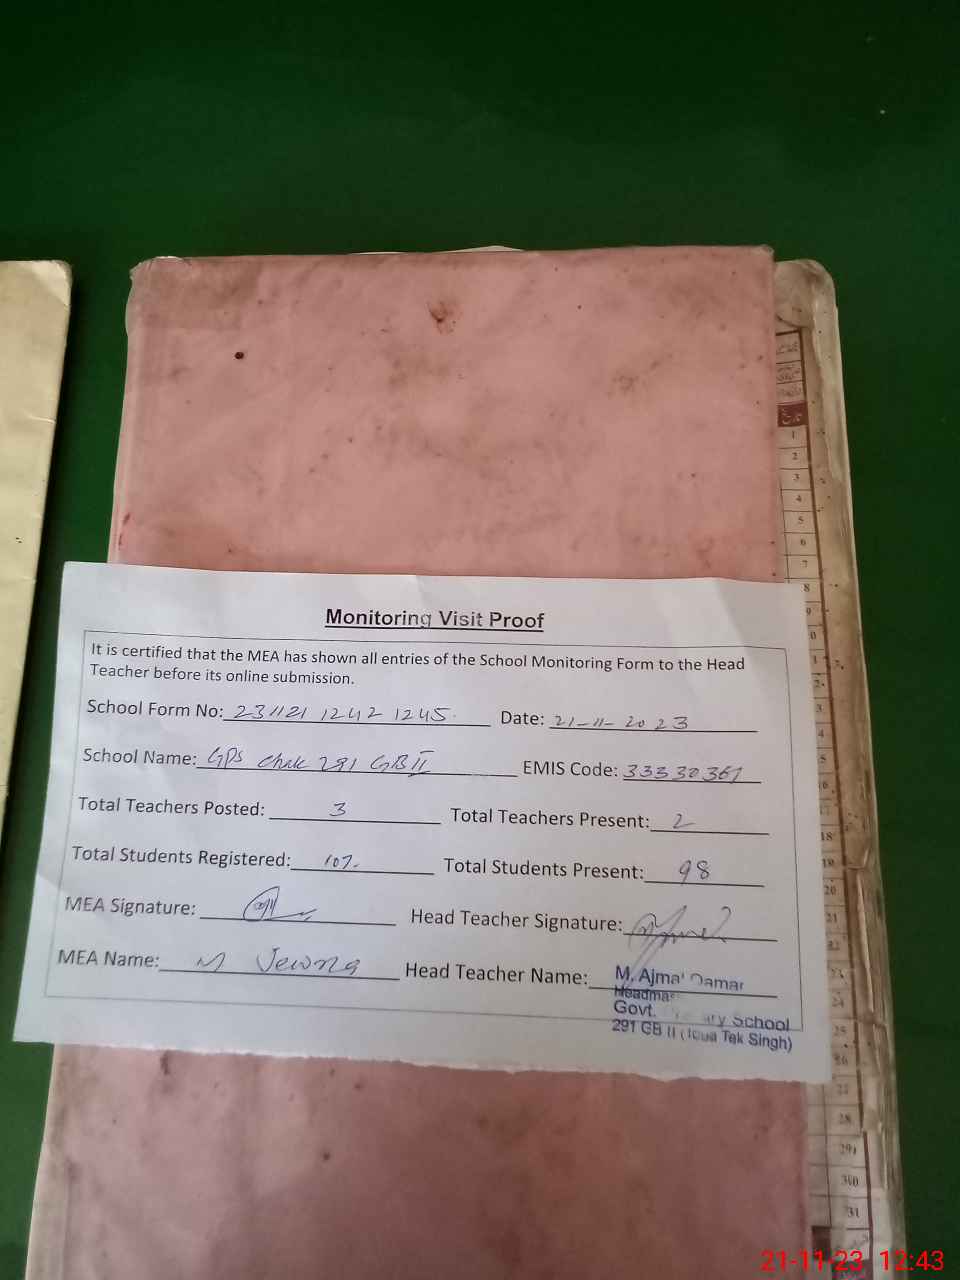 Monitoring Visit Proof
It is certified that the MEA has shown all entries of the School Monitoring Form to the Head
Teacher before its online submission.
School Form No: 231121 1242 1245 Date: 21-11-2023
School Name: GPS Chak 291 GB II EMIS Code: 33330361
Total Teachers Posted: 3 Total Teachers Present: 2
Total Students Registered: 107 Total Students Present: 98
MEA Signature: Head Teacher Signature:
MEA Name: M Head Teacher Name: M. Ajmal
Govt. School
291 GB II (Tek Singh)
1
2
3
4
5
6
7
8
9
18
19
20
21
22
23
24
25
26
27
28
29
30
31
21-11-23 12:43